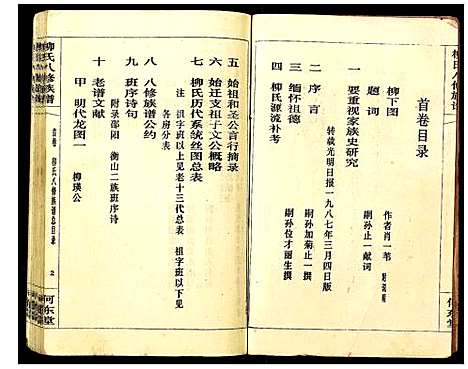 柳氏八修族谱
首卷目录
柳下图
题词
作者肖一苇
嗣孙止一献词
一 要重视家族史研究
转载光明日报一九八七年三月四日版
二 序言
嗣孙加菊止一撰
三 缅怀祖德
嗣孙位才丽生撰
四 柳氏源流补考
五 始祖和圣公言行摘录
六 始迁支祖子文公概略
七 柳氏历代系统丝图总表
注 祖字班以上见老十三代总表 祖字班以下见
各房分表
八 八修族谱公约
九 班序诗句
附录邵阳 衡山二族班序诗
十 老谱文献
甲 明代龙图一 柳瑛公
柳氏八修族谱
首卷 柳氏八修族谱总目录
2
河东堂